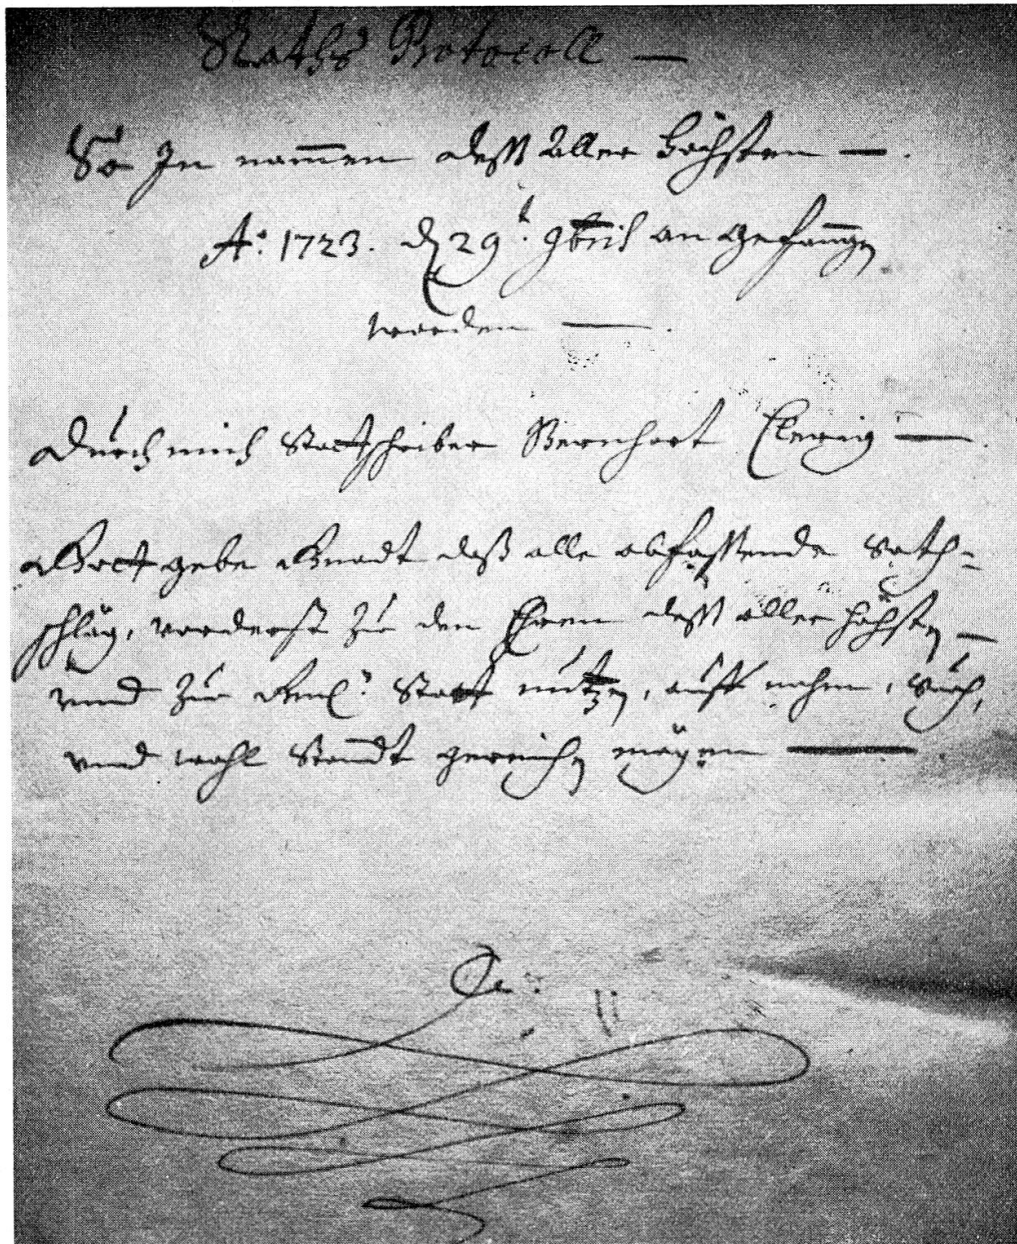 Raths Protocoll —
So In nammen deß Aller Höchsten —.
Aº: 1723. d 29t. 9bris an gefangen
worden —.
Durch mich Stattschreiber Bernhart —.
Gott gebe Gnadt daß alle abfassende Rath-
schläg, vorderst zu den Ehren deß aller höchsten —
und zur Statt nutzen, auff nahm,
und wohl Standt gereichen mögen —.